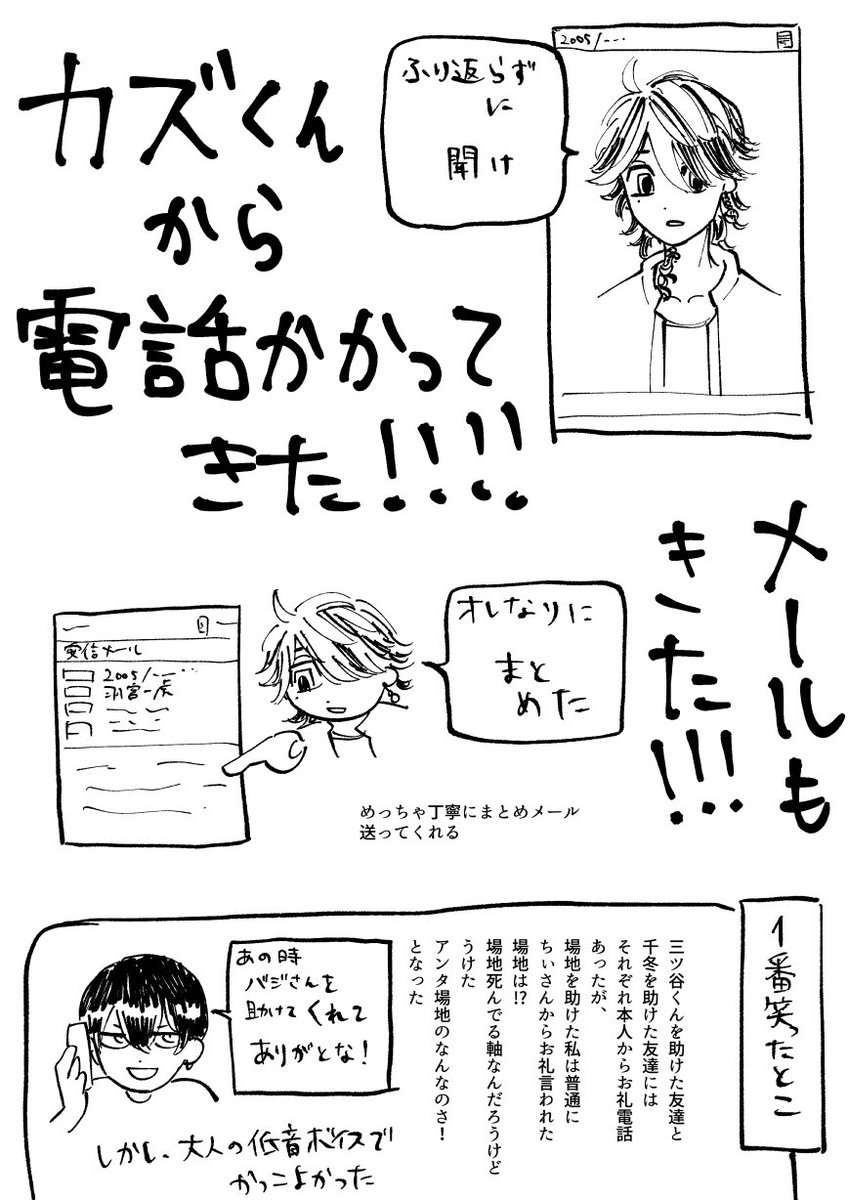 カズくん
から
電話かかって
きた!!!!
ふり返らず
に
聞け
2005/--..
メールも
きた!!!
オレなりに
まと
めた
受信メール
2005/--...
羽宮一虎
めっちゃ丁寧にまとめメール
送ってくれる
1番笑たとこ
三ツ谷くんを助けた友達と
千冬を助けた友達には
それぞれ本人からお礼電話
あったが、
場地を助けた私は普通に
ちぃさんからお礼言われた
場地は!?
場地死んでる軸なんだろうけど
うけた
アンタ場地のなんなのさ!
となった
あの時
バジさんを
助けてくれて
ありがとな!
しかし、大人の低音ボイスで
かっこよかった